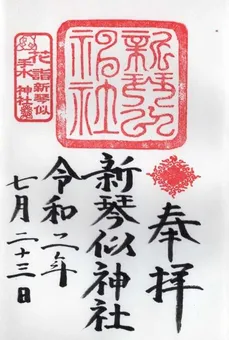 奉拝
新琴似神社
令和二年
七月二十三日
新琴似神社
花詣
新琴似神社